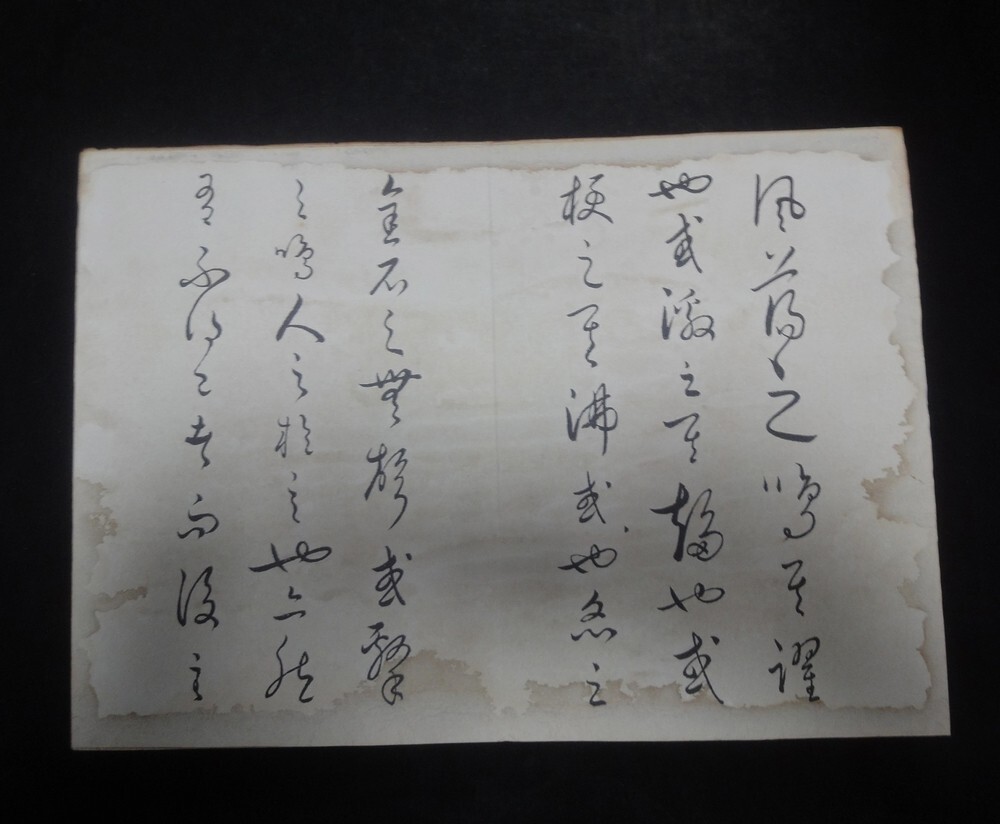 風蕩之鳴其躍
也或激之其趨也或
梗之其沸或也炙之
金石之無聲或擊
之鳴人之於言也亦然
有不得已者而後言